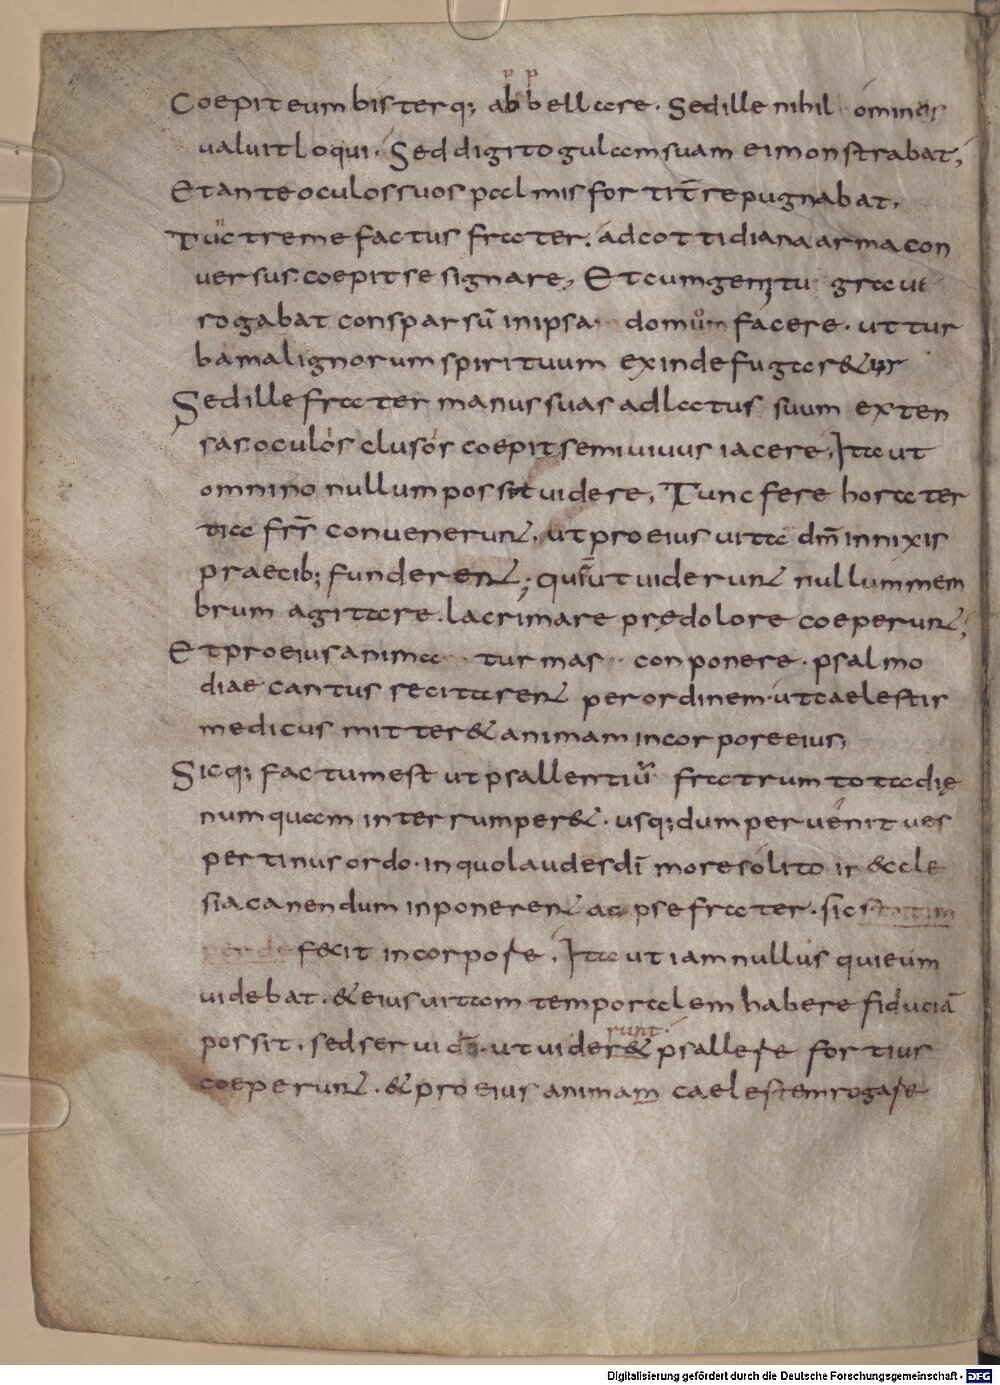 p p
Coepit eum bis terq; abbellare. Sed ille nihil ominus
ualuit loqui. Sed digito gulam suam ei monstrabat;
Et ante oculos suos palmis fortit̄ repugnabat.
Tūc tremefactus frater. ad cottidiana arma con
uersus. coepit se signare, Et cum gemitu graui
rogabat consparsū in ipsa domum facere. ut tur
ba malignorum spirituum exinde fugar&ur
Sed ille frater manus suas ad latus suum exten
sas. oculos clusos coepit semiuiuus iacere, Ita ut
omnino nullum possit uidere, Tunc fere hora ter
tia frs̄ conuenerunt, ut pro eius uita dn̄m innixis
praecib; funderent; qui ut uiderunt nullum mem
brum agitare. lacrimare prę dolore coeperunt;
Et pro eius anima turmas conponere. psalmo
diae cantus recitarent per ordinem. ut caelestis
medicus mitter& animam in corpore eius;
Sicq; factum est ut psallentiū fratrum tota die
numquam interrumper&. usq; dum peruenit ues
pertinus ordo. in quo laudes dī more solito in eccle
sia canendum inponerent ac pse frater. sic statim
fecit in corpore. Ita ut iam nullus qui eum
uidebat. & eius uitam temporalem habere fiduciā
possit. sed serui dī. ut uider& psallere fortius
runt.
coeperunt. & pro eius animam caelestem rogare
Digitalisierung gefördert durch die Deutsche Forschungsgemeinschaft - DFG